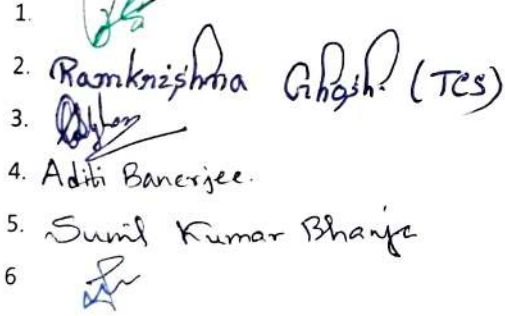 1.
2. Ramknishna Ghosh. (TCS)
3.
4. Aditi Banerjee.
5. Sunil Kumar Bhanja
6